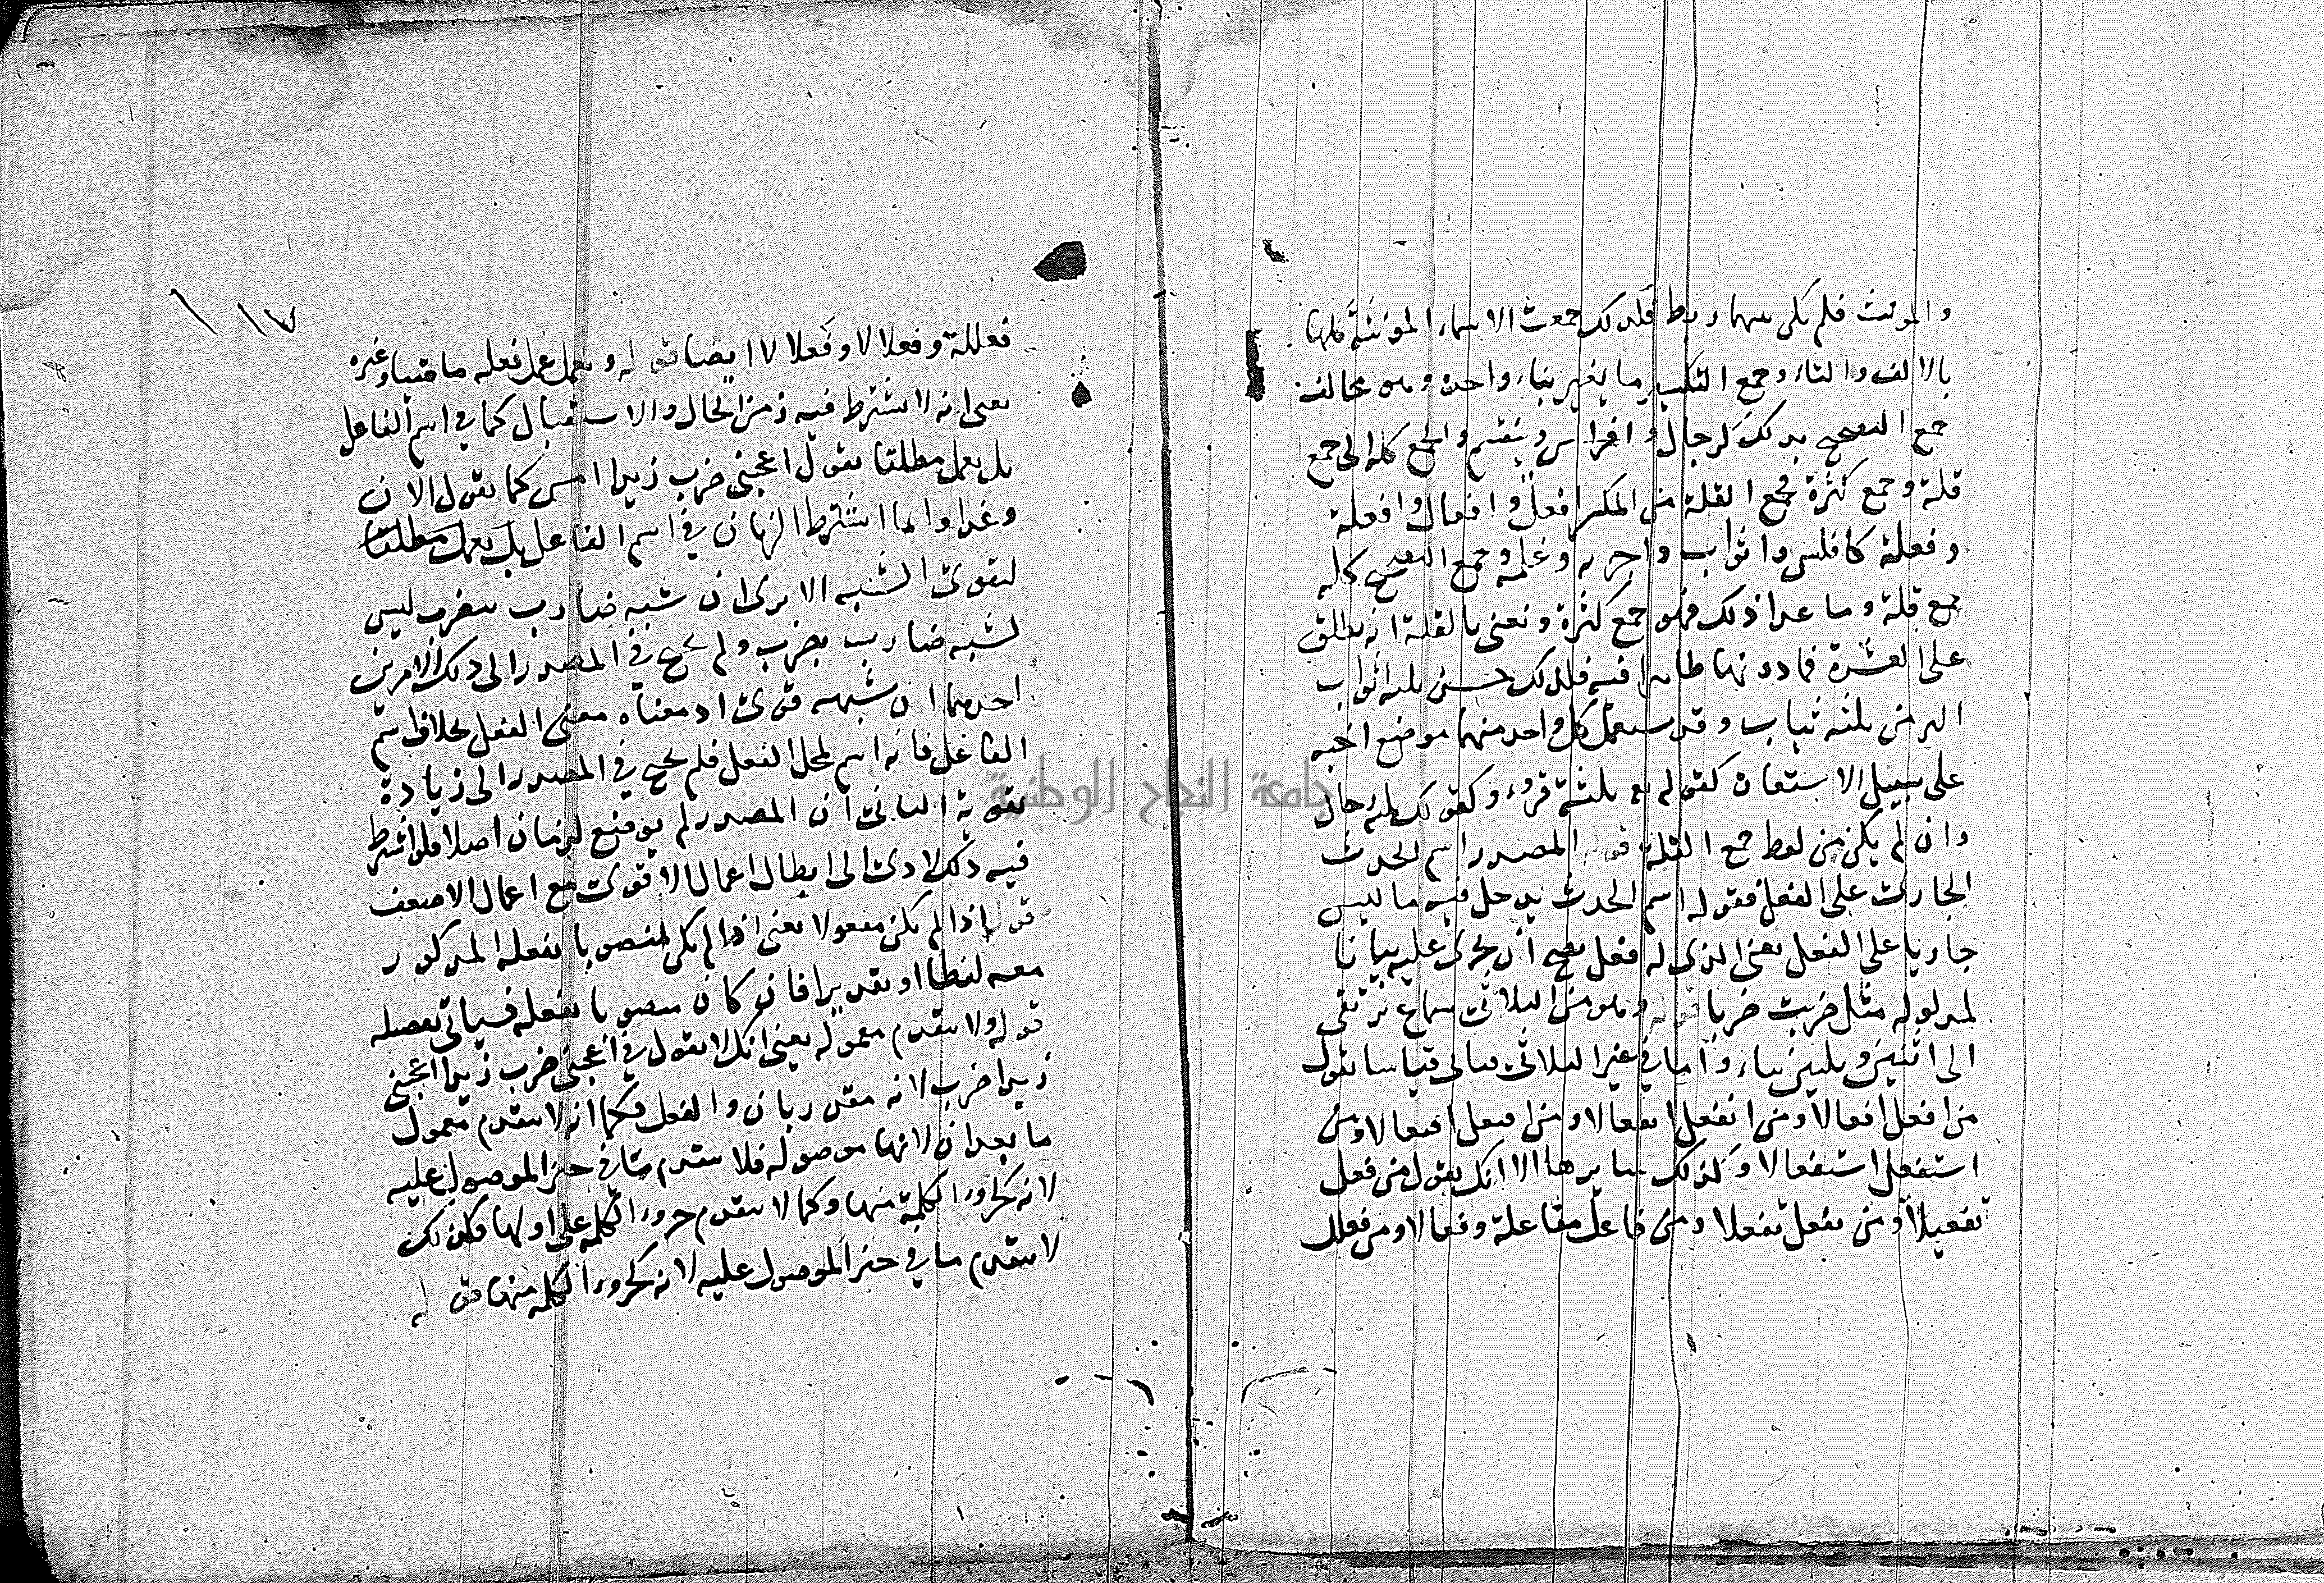 والمونث فلم يكن بينهما ربط فلذلك جمعت الاسماء المونثة كلها
بالالف والتاء وجمع التكسير ما يغير بناء واحده وهو مخالف
جمع الصحيح بذلك كرجال وافراس وينقسم والجمع كله الى جمع
قلة وجمع كثرة فجمع القلة من المكسر افعل وافعال وافعلة
وفعلة كافلس واثواب واجربه وغلمة وجمع الصحيح كله
جمع قلة وما عدا ذلك فهو جمع كثرة ونعنى بالقلة انه يطلق
على العشرة فما دونها ظاهرا فيه فلذلك حسن ثلثه اثواب
اكثر من ثلثه ثياب وقد يستعمل كل واحد منهما موضع اخيه
على سبيل الاستعان كقوله تع ثلثة قروء وكقولك ثلثه رجال
وان لم يكن من لفظ جمع القلة قوله المصدر اسم الحدث
الجارى على الفعل فقوله اسم الحدث يدخل فيه ما ليس
جاريا على الفعل يعنى الذى له فعل يصح ان يجرى عليه بيانا
لمدلوله مثل ضربت ضربا قوله وهو من الثلاثى سماع ترتقى
الى اثنين وثلثين بناء واما فى غير الثلاثى فياتى قياسا تقول
من افعل افعالا ومن انفعل انفعالا ومن افتعل افتعالا ومن
استفعل استفعالا وكذلك سايرها الا انك تقول من فعل
تفعيلا ومن تفعل تفعلا ومن فاعل مفاعلة وفعالا ومن فعلل
١١٧
فعللة وفعلالا وفعلالا ايضا قوله ويعمل عمل فعله ماضيا وغيره
يعنى انه لا يشترط فيه زمن الحال والاستقبال كما فى اسم الفاعل
بل يعمل مطلقا تقول اعجبنى ضرب زيدا امس كما تقول الان
وغدا وانما اشترط الزمان فى اسم الفاعل بل يعمل مطلقا
لتقوى الشبه الا ترى ان شبه ضارب بيضرب ليس
لشبه ضارب بضرب ولم يحتج فى المصدر الى ذلك لامرين
احدهما ان شبهه قوى اذ معناه معنى الفعل بخلاف اسم
الفاعل فانه اسم لمحل الفعل فلم يحتج فى المصدر الى زيادة
تقوية الثانى ان المصدر لم يوضع لزمان اصلا فلو اشترط
فيه ذلك لادى الى ابطال اعمال الاقوى مع اعمال الاضعف
قوله اذا لم يكن مفعولا يعنى اذا لم يكن منصوبا بفعله المذكور
معه لفظا او تقديرا فان كان منصوبا بفعله فسياتى تفصيله
قوله ولا يتقدم معموله يعنى انك لا تقول فى اعجبنى ضرب زيدا اعجبنى
زيدا ضرب لانه مقدر بان والفعل فكما انه لا يتقدم معمول
ما بعد ان لانها موصولة فلا يتقدم ما فى حيز الموصول عليه
لانه كجزء الكلمة منها وكما لا يتقدم جزء الكلمة على اولها فكذلك
لا يتقدم ما فى حيز الموصول عليه لانه كجزء الكلمه منها قوله
جامعة النجاح الوطنية